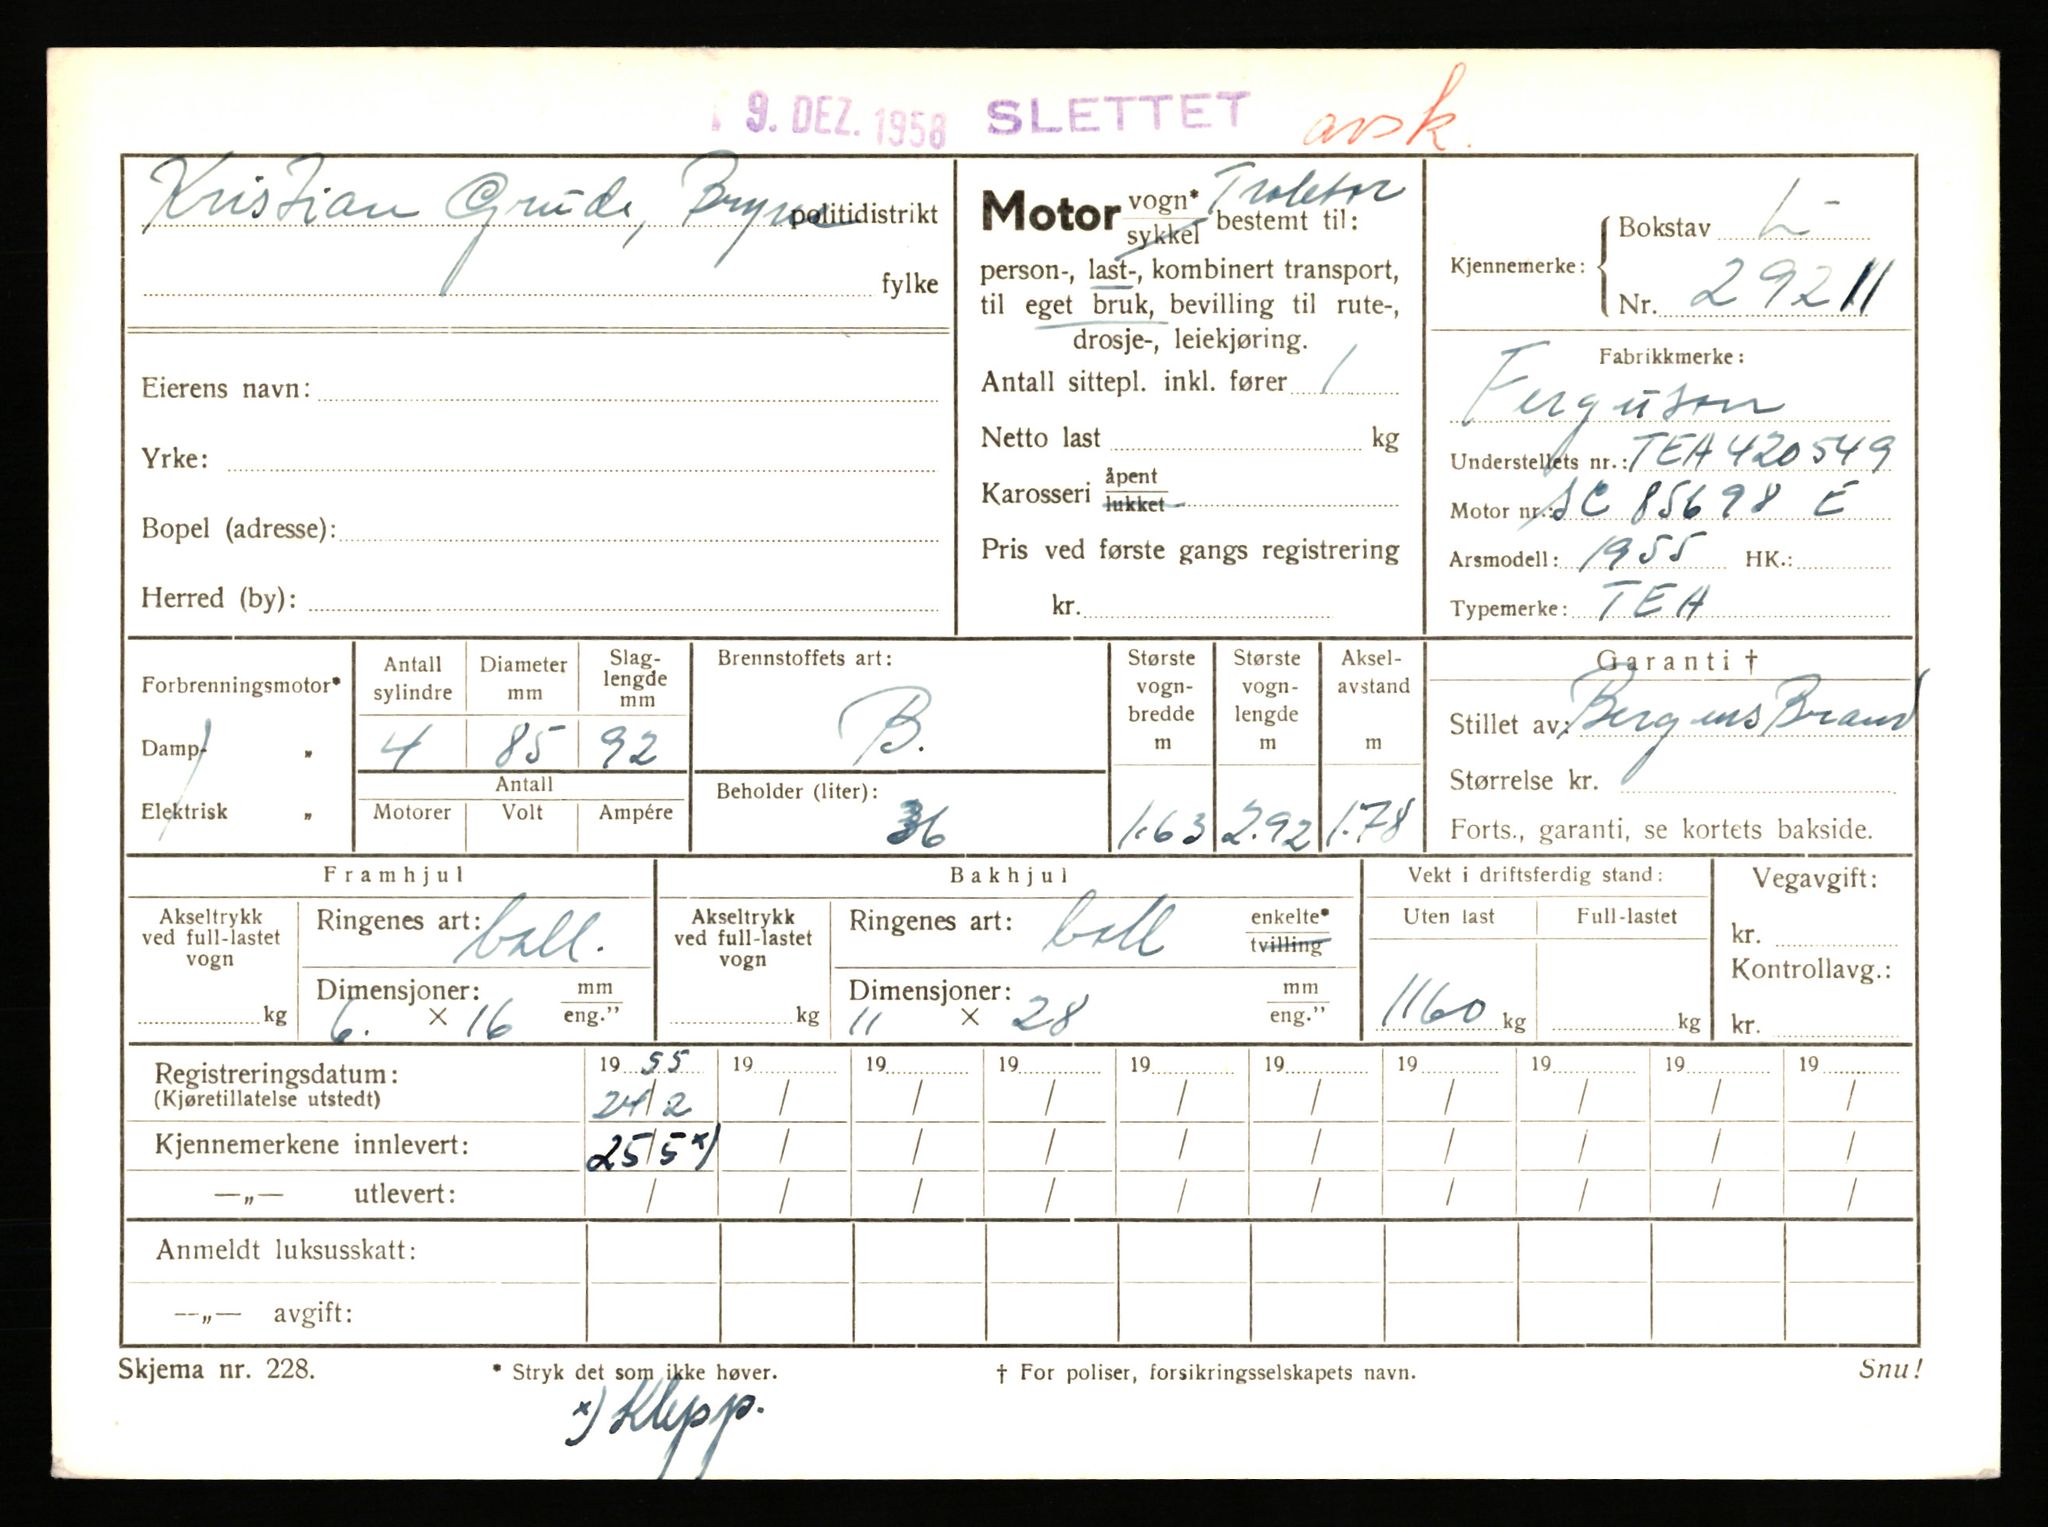 9. DEZ. 1958 SLETTET avsk.
Kristian Grude, Bryne politidistrikt
fylke
Eierens navn:
Yrke:
Bopel (adresse):
Herred (by):
Motor vogn* sykkel Traktor bestemt til:
person-, last-, kombinert transport,
til eget bruk, bevilling til rute-,
drosje-, leiekjøring.
Antall sittepl. inkl. fører 1
Netto last kg
Karosseri åpent lukket
Pris ved første gangs registrering
kr.
Kjennemerke: Bokstav L-
Nr. 29211
Fabrikkmerke:
Ferguson
Understellets nr.: TEA 420549
Motor nr.: SC 85698 E
Arsmodell: 1955 HK.:
Typemerke: TEA
Forbrenningsmotor*
Damp- „
Elektrisk „
Antall sylindre Diameter mm Slag-lengde mm
4 85 92
Antall
Motorer Volt Ampére
Brennstoffets art:
B.
Beholder (liter):
36
Største vogn-bredde m Største vogn-lengde m Aksel-avstand m
1.63 2.92 1.78
Garanti †
Stillet av: Bergens Brand
Størrelse kr.
Forts., garanti, se kortets bakside.
Framhjul
Akseltrykk ved full-lastet vogn
kg
Ringenes art: ball.
Dimensjoner: mm eng.”
6. × 16
Bakhjul
Akseltrykk ved full-lastet vogn
kg
Ringenes art: ball enkelte* tvilling
Dimensjoner: mm eng.”
11 × 28
Vekt i driftsferdig stand:
Uten last Full-lastet
1160 kg kg
Vegavgift:
kr.
Kontrollavg.:
kr.
Registreringsdatum: 19 55 19 19 19 19 19 19 19 19 19
(Kjøretillatelse utstedt) 24/2 / / / / / / / / /
Kjennemerkene innlevert: 25/5 x) / / / / / / / / /
—„— utlevert: / / / / / / / / / /
Anmeldt luksusskatt:
—„— avgift:
Skjema nr. 228. * Stryk det som ikke høver. † For poliser, forsikringsselskapets navn. Snu!
x) Klepp.